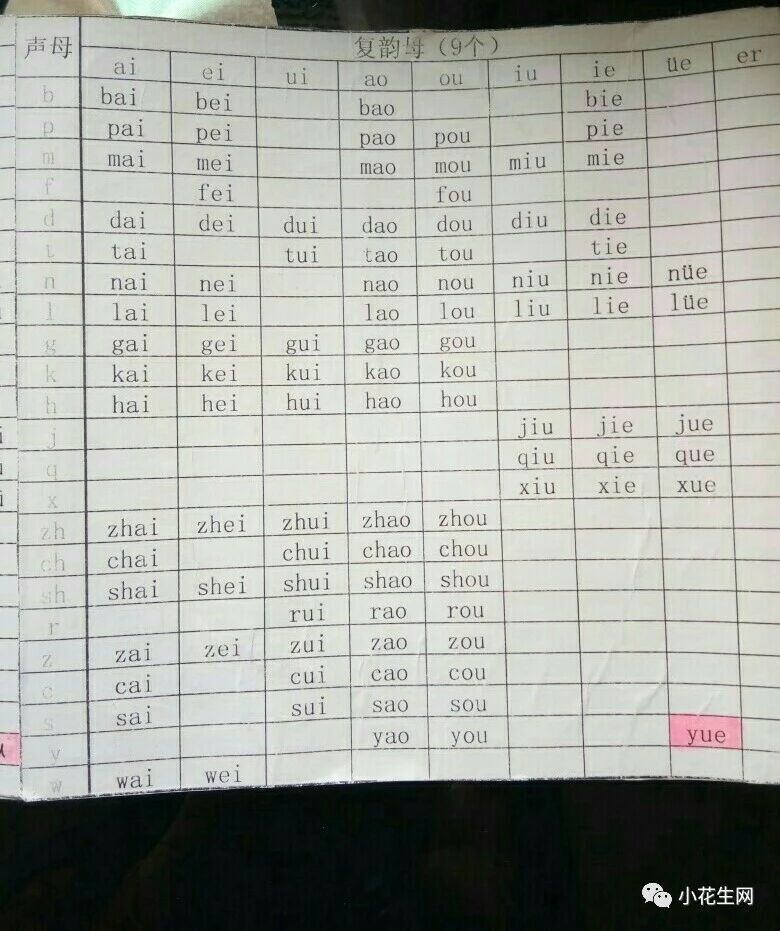 声母 复韵母（9个）
ai ei ui ao ou iu ie üe er
b bai bei bao bie
p pai pei pao pou pie
m mai mei mao mou miu mie
f fei fou
d dai dei dui dao dou diu die
t tai tui tao tou tie
n nai nei nao nou niu nie nüe
l lai lei lao lou liu lie lüe
g gai gei gui gao gou
k kai kei kui kao kou
h hai hei hui hao hou
j jiu jie jue
q qiu qie que
x xiu xie xue
zh zhai zhei zhui zhao zhou
ch chai chui chao chou
sh shai shei shui shao shou
r rui rao rou
z zai zei zui zao zou
c cai cui cao cou
s sai sui sao sou
y yao you yue
w wai wei
小花生网